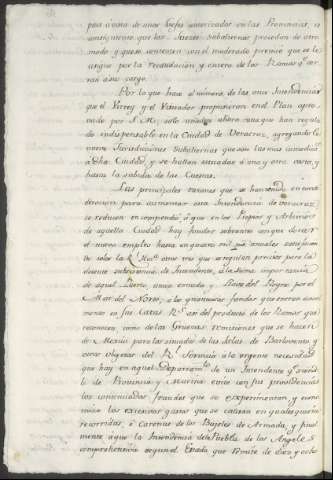 para á costa de unos Gefes autorizados en las Provincias, es
consiguiente que los Jueces Subalternos procedan de otro
modo y que se contenten con el moderado premio que se le
asigne por la recaudacion y entero de los Ramos qe. cor-
ran á su cargo.
Por lo que hace al número de las once Intendencias
que el Virrey y el Visitador propusieron en el Plan apro-
vado por S.M., solo añaden ahora una que han regula-
do indispensable en la Ciudad de Veracruz, agregandole
nueve Jurisdicciones Subalternas que son las mas inmediatas
á dha. Ciudad, y se hallan situadas á una y otra parte, y
hasta la subida de las Cuestas.
Las principales razones que se han tenido en consi-
deracion para aumentar esta Intendencia de Veracruz
se reducen en compendio á que en los Propios y Arbitrios
de aquella Ciudad hay fondos sobrantes con que dotar
el nuevo empleo hasta en quatro mil ps. anuales satisfacien-
do solos la Rl. Hacda. otros tres que se regulan precisos para la
decente subsistencia de Intendente, á la suma importancia
de aquel Puerto, unica entrada y llave del Reyno por el
Mar del Norte, á los quantiosos fondos que entran anual-
mente en sus Caxas Rs. asi del producto de los Ramos que
reconocen, como de las gruesas remisiones que se hacen
de Mexico para los situados de las Islas de Barlovento y
otros objetos del Rl. Servicio á la urgente necesidad
que hay en aquel Departamto. de un Intendente qe. siendo
lo de Provincia y Marina evite con sus providencias
los continuados fraudes que se experimentan, y econo-
mize los excesivos gastos que se causan en qualesquiera
recorridas, ó carenas de los Bajeles de Armada, y final-
mente á que la Intendencia de la Puebla de los Angeles
comprehenderia segun el Estado que remite de diez y ocho